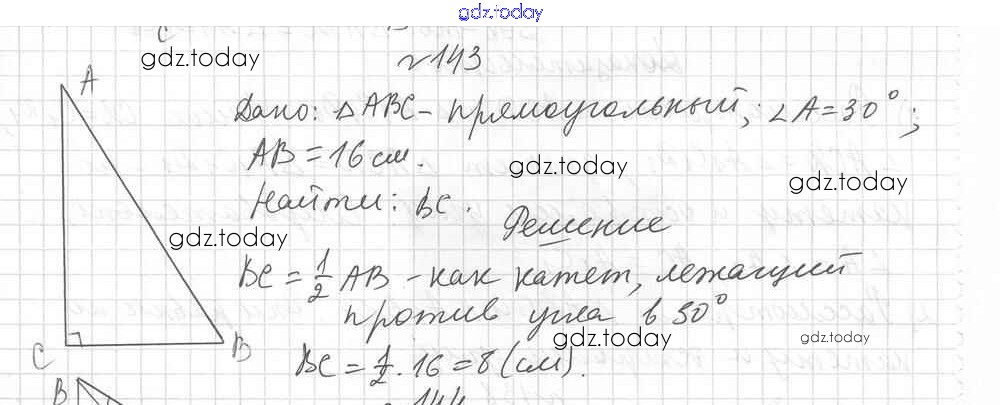 gdz.today
C
gdz.today
№143
A
Дано: △ABC - прямоугольный; ∠A = 30°;
AB = 16 см.
gdz.today
gdz.today
Найти: BC.
Решение
gdz.today
BC = 1/2 AB - как катет, лежащий
против угла в 30°
gdz.today
gdz.today
C
B
BC = 1/2 · 16 = 8 (см).
B
144